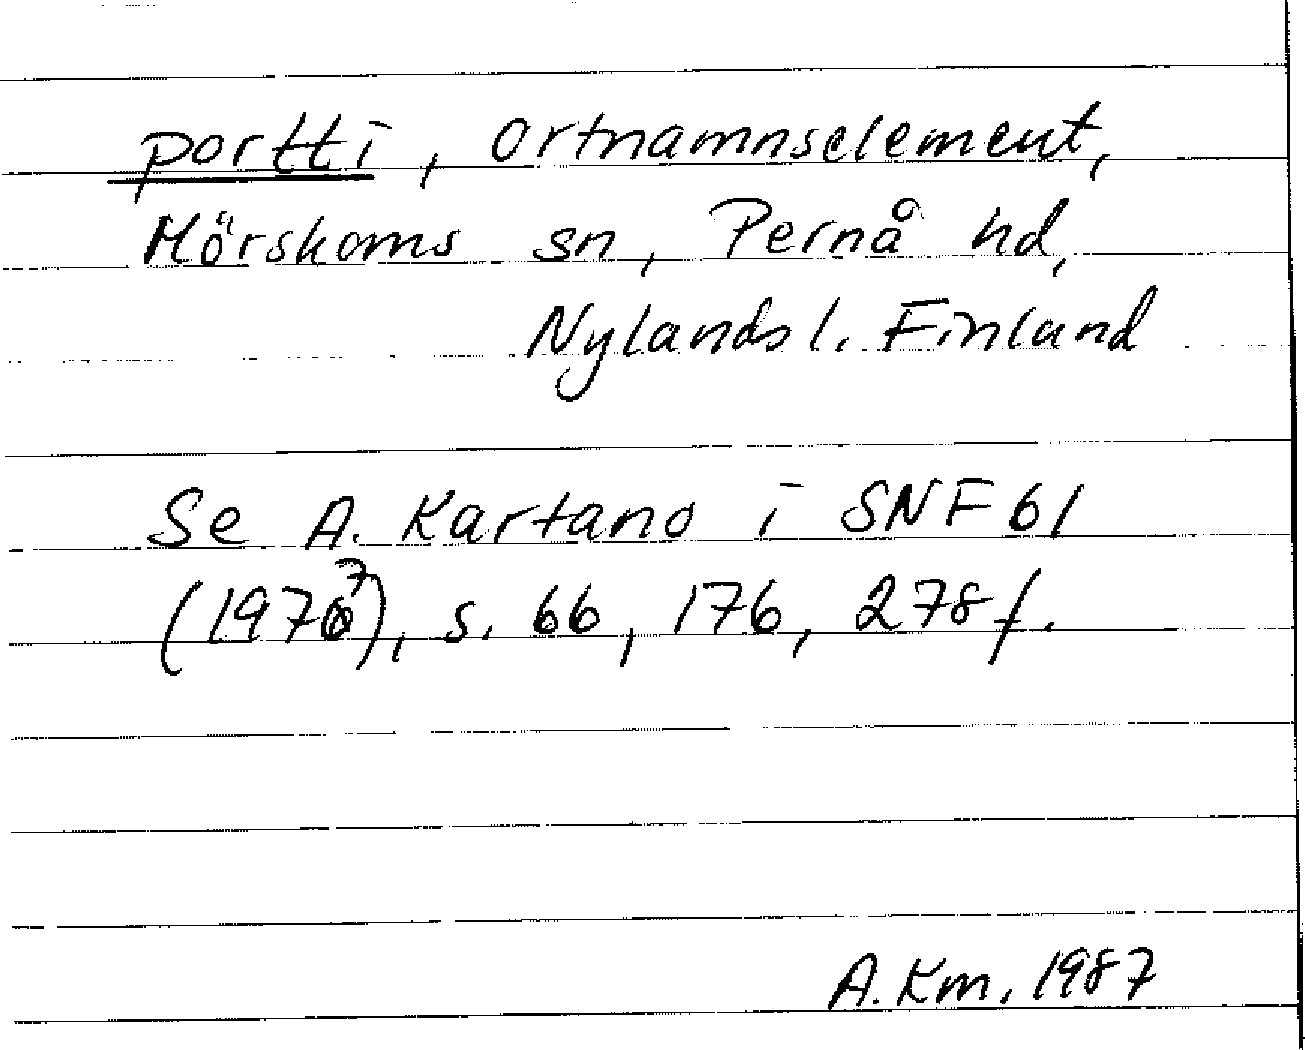 portti, ortnamnselement,
Mörskoms sn, Pernå hd,
Nylands l. Finland
Se A. Kartano i SNF 61
(1977), s. 66, 176, 278 f.
A. Km. 1987